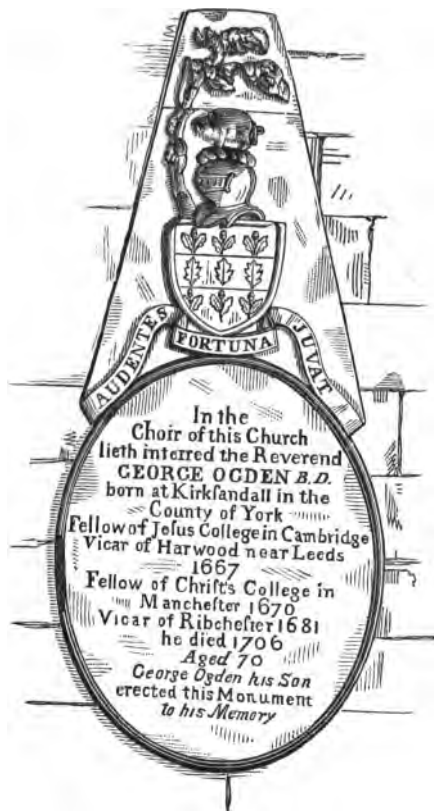 AUDENTES FORTUNA JUVAT
In the
Choir of this Church
lieth interred the Reverend
GEORGE OGDEN B.D.
born at Kirkſandall in the
County of York
Fellow of Jeſus College in Cambridge
Vicar of Harwood near Leeds
1667
Fellow of Chriſt's College in
Mancheſter 1670
Vicar of Ribcheſter 1681
he died 1706
Aged 70
George Ogden his Son
erected this Monument
to his Memory